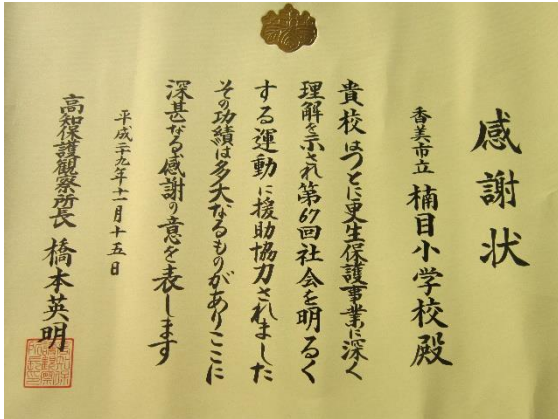 感謝状
香美市立 楠目小学校殿
貴校はつとに更生保護事業に深く
理解を示され第67回社会を明るく
する運動に援助協力されました
その功績は多大なるものがありここに
深甚なる感謝の意を表します
平成二九年十一月十五日
高知保護観察所長 橋本英明